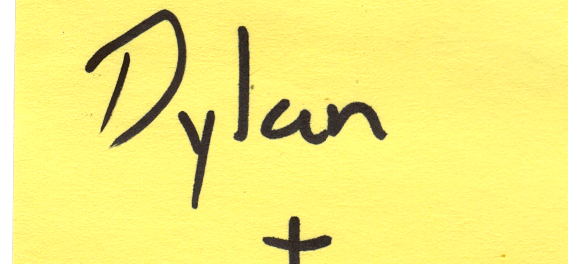 Dylan
+